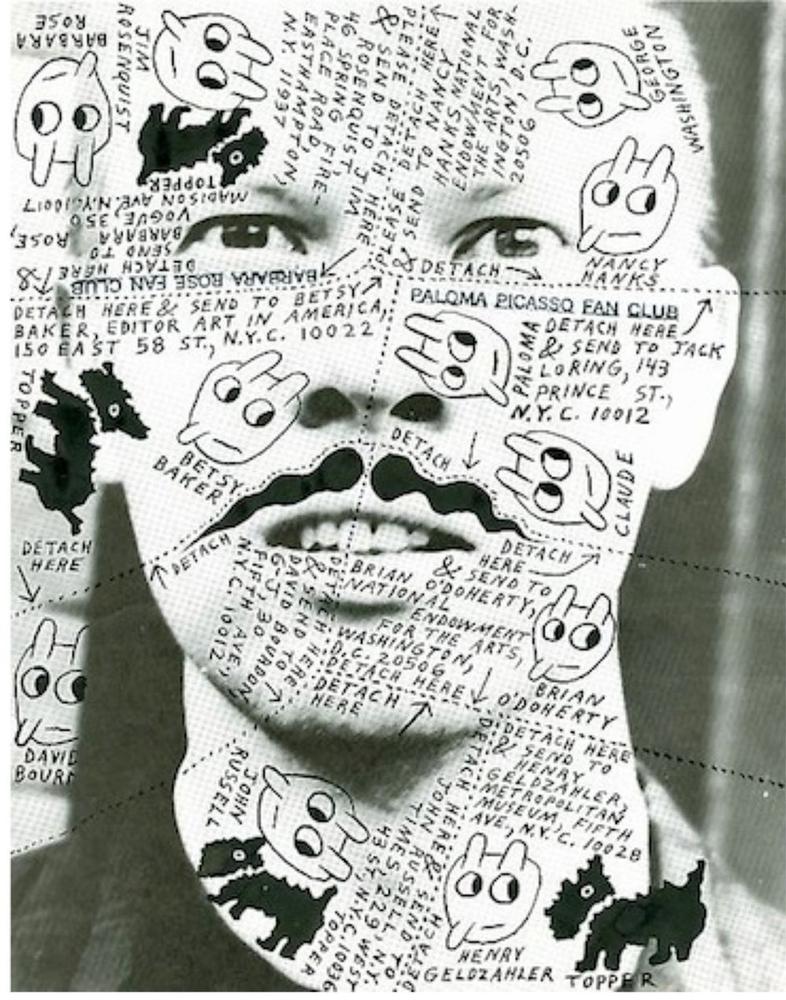 BARBARA
ROSE
JIM
ROSENQUIST
TOPPER
PLEASE DETACH HERE
& SEND TO JIM
ROSENQUIST
46 SPRING
PLACE ROAD FIRE-
EASTHAMPTON,
N.Y. 11937
PLEASE DETACH HERE
& SEND TO NANCY
HANKS, NATIONAL
ENDOWMENT FOR
THE ARTS, WASH-
INGTON, D.C.
20506
GEORGE
WASHINGTON
NANCY
HANKS
DETACH HERE &
SEND TO
BARBARA ROSE,
VOGUE, 350
MADISON AVE, NYC 10017
BARBARA ROSE FAN CLUB
DETACH
PALOMA PICASSO FAN CLUB
DETACH HERE & SEND TO BETSY
BAKER, EDITOR ART IN AMERICA,
150 EAST 58 ST., N.Y.C. 10022
PALOMA
DETACH HERE
& SEND TO JACK
LORING, 143
PRINCE ST.,
N.Y.C. 10012
TOPPER
BETSY
BAKER
DETACH
CLAUDE
DETACH
HERE
DETACH
DETACH
HERE
DETACH HERE
& SEND TO
DAVID BOURDON
FIFTH AVE,
N.Y.C. 10012
& SEND TO
BRIAN O'DOHERTY,
NATIONAL
ENDOWMENT
FOR THE ARTS,
WASHINGTON,
D.C. 20506
DETACH HERE
DETACH
HERE
BRIAN
O'DOHERTY
DAVID
BOURN
DETACH HERE
& SEND TO
HENRY
GELDZAHLER,
METROPOLITAN
MUSEUM, FIFTH
AVE, N.Y.C. 10028
JOHN
RUSSELL
DETACH HERE & SEND TO
JOHN RUSSELL, N.Y.
TIMES, 229 WEST
43 ST, N.Y.C. 10036
TOPPER
HENRY
GELDZAHLER
TOPPER